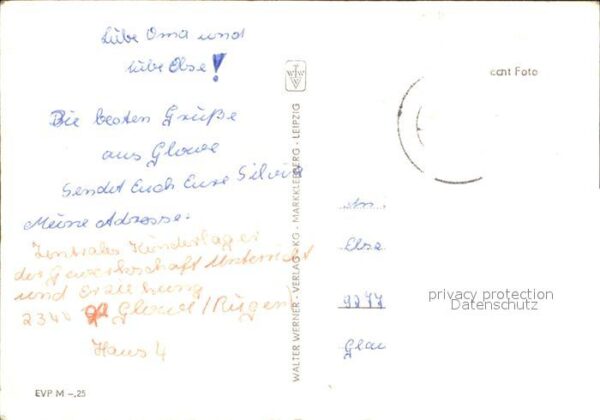 Liebe Oma und
liebe Else!
Die besten Grüße
aus Glowe
sendet Euch Eure Silvia
Meine Adresse:
Zentrales Kinderlager
der Gewerkschaft Unterricht
und Erziehung
2340 Glowe/Rügen
Haus 4
EVP M -,25
WALTER WERNER - VERLAG - KG - MARKKLEEBERG - LEIPZIG
WWV
echt Foto
An
Elsa
9277
Glau
privacy protection
Datenschutz